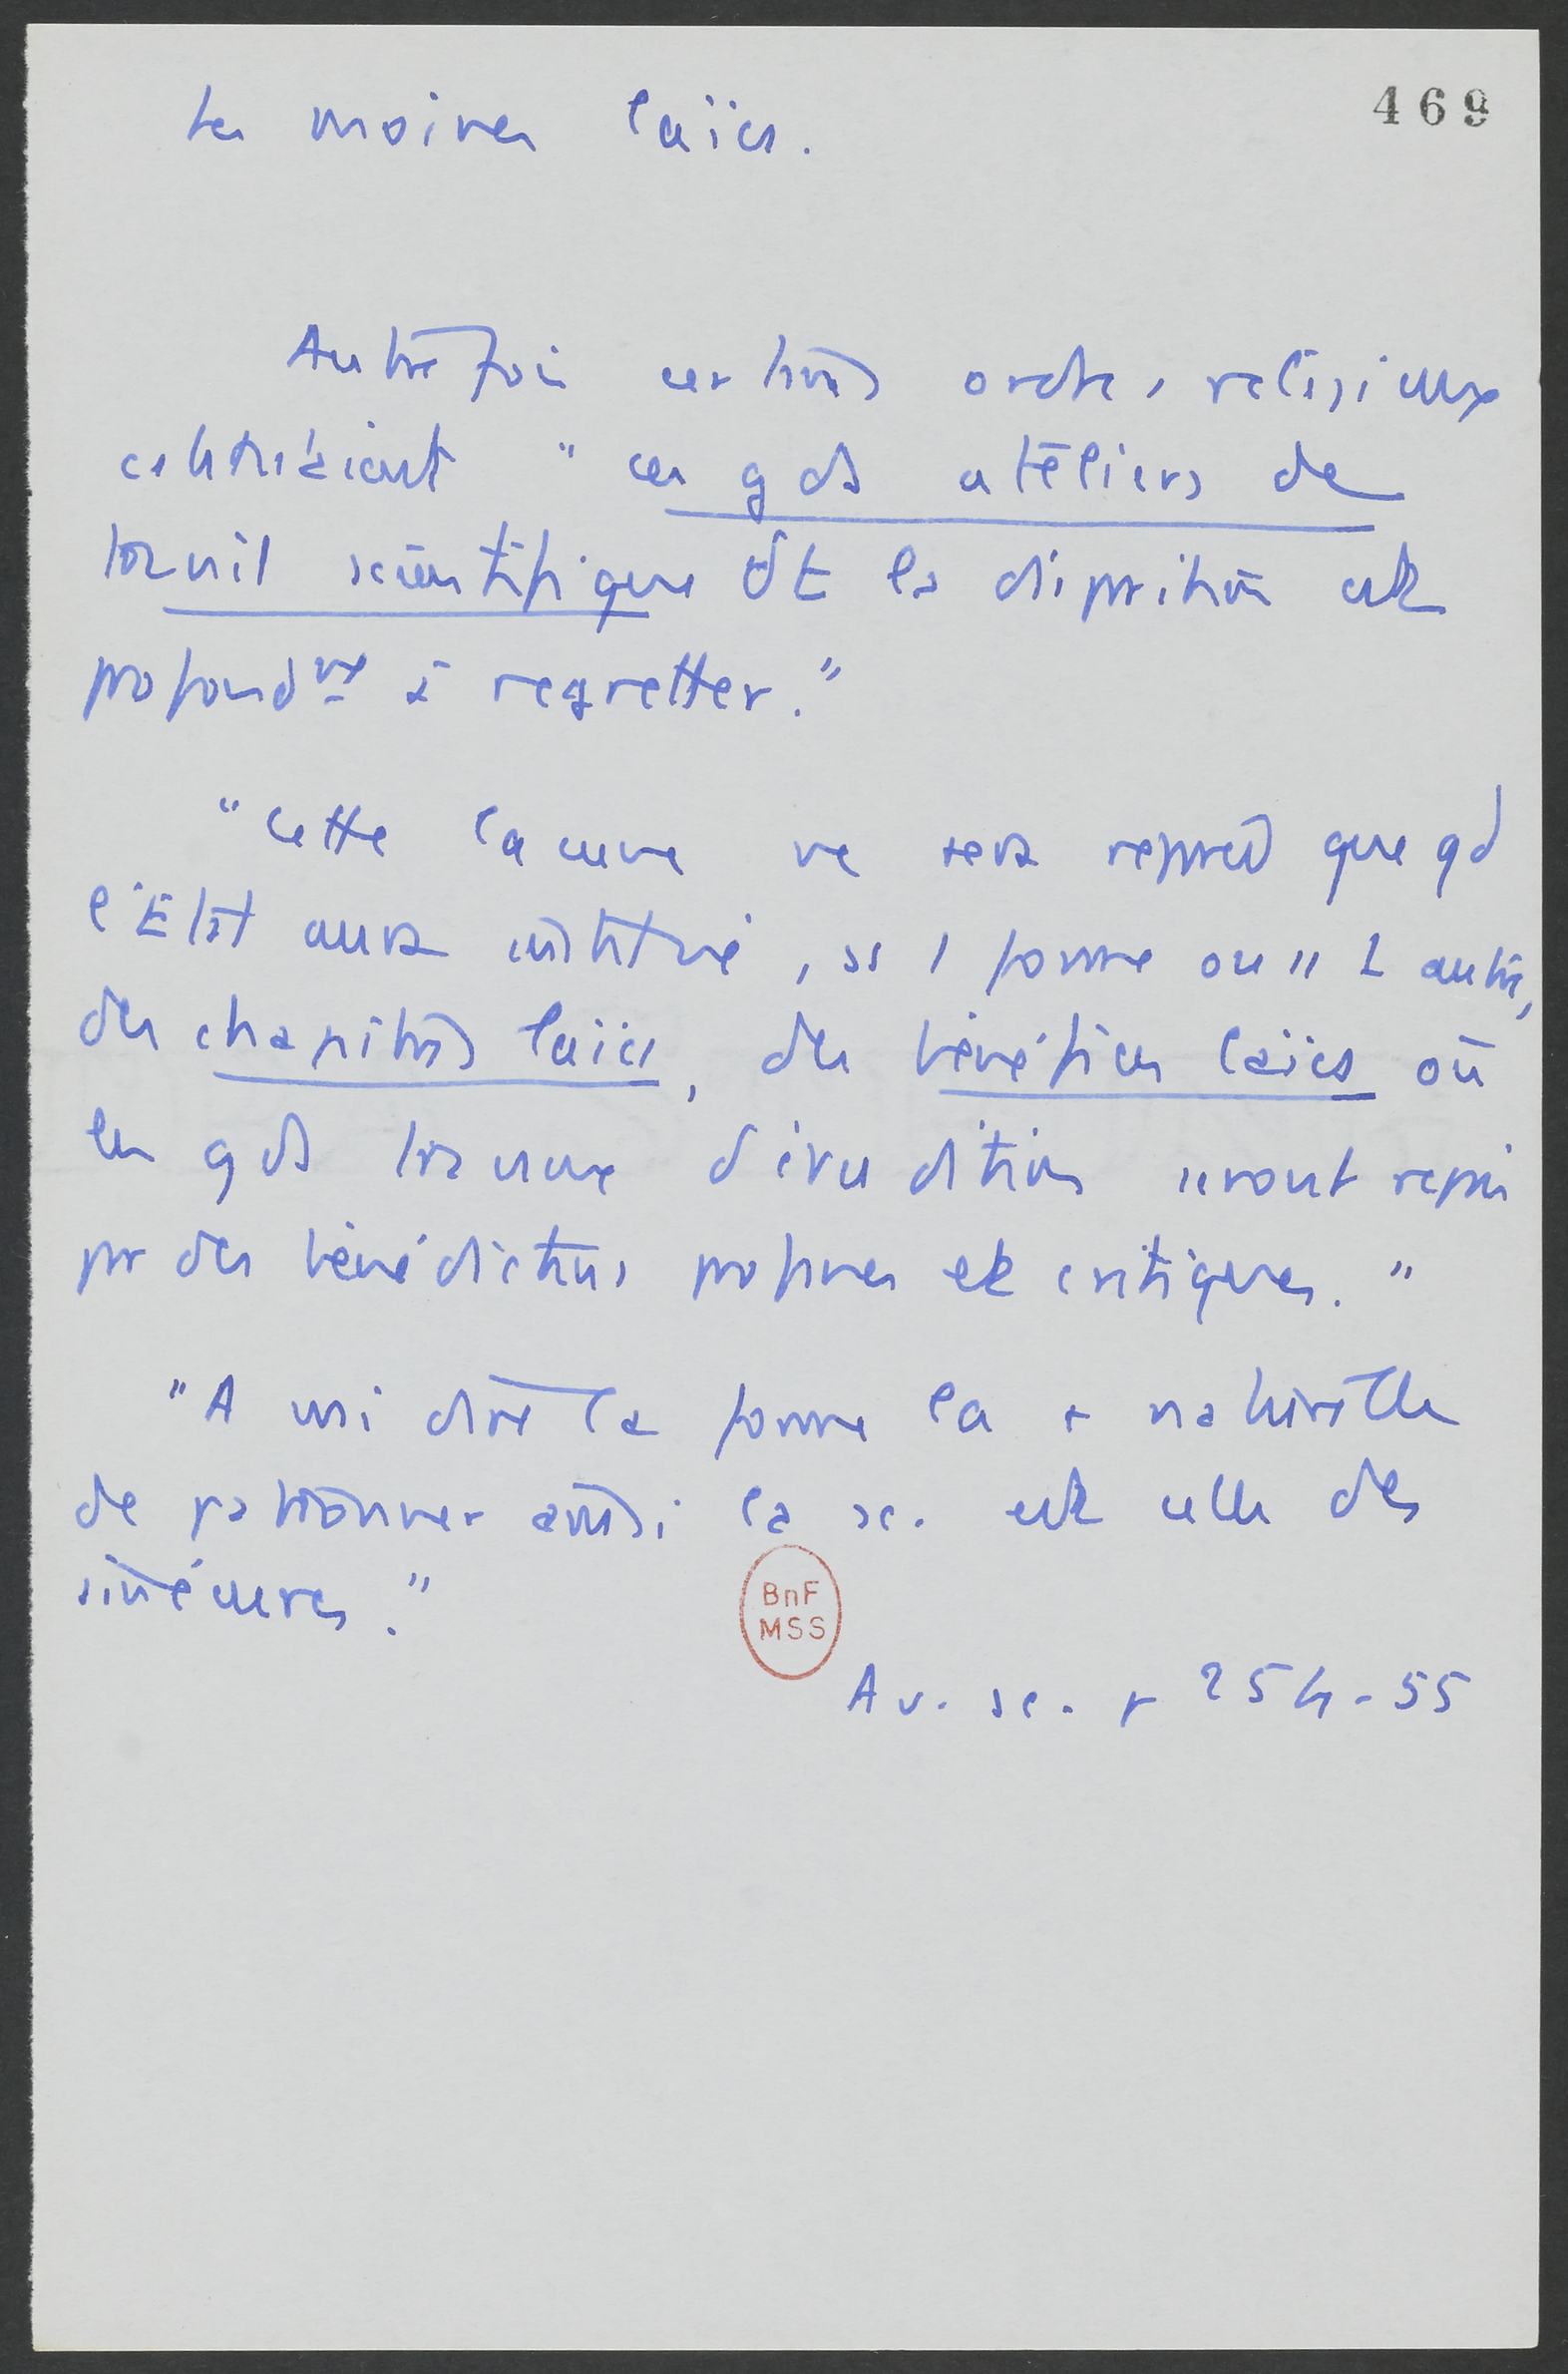 469
Les moines laïcs.
Autrefois certains ordres religieux
constituaient " ces gds ateliers de
travail scientifique dt la disparition est
profondmt à regretter."
"Cette lacune ne sera réparée que qd
l'Etat aura institué, ss 1 forme ou ss 1 autre,
des chapitres laïcs, des bénéfices laïcs où
les gds travaux d'érudition seront repris
pr des bénédictins profanes et critiques."
"A vrai dire la forme la + naturelle
de patronner ainsi la sc. est celle des
sinécures."
BnF
MSS
Av. sc. p 254-55